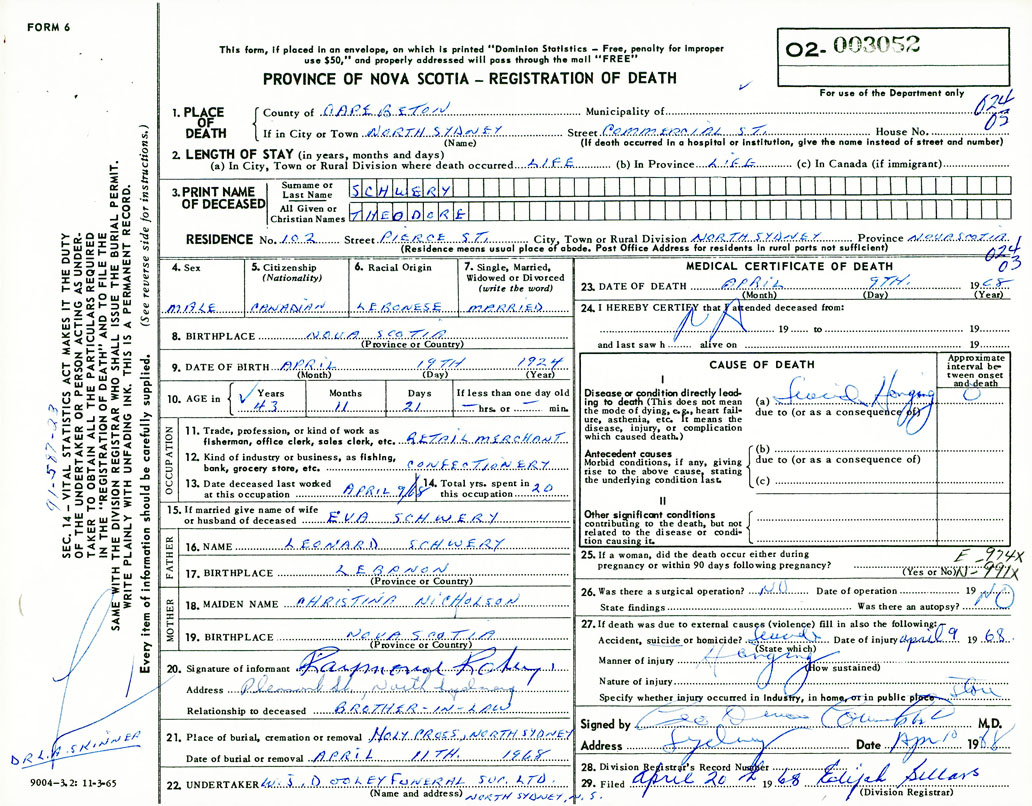 FORM 6
This form, if placed in an envelope, on which is printed "Dominion Statistics – Free, penalty for improper
use $50," and properly addressed will pass through the mail "FREE"
PROVINCE OF NOVA SCOTIA – REGISTRATION OF DEATH
02- 003052
For use of the Department only
024
03
SEC. 14 – VITAL STATISTICS ACT MAKES IT THE DUTY
OF THE UNDERTAKER OR PERSON ACTING AS UNDER-
TAKER TO OBTAIN ALL THE PARTICULARS REQUIRED
IN THE "REGISTRATION OF DEATH" AND TO FILE THE
SAME WITH THE DIVISION REGISTRAR WHO SHALL ISSUE THE BURIAL PERMIT.
WRITE PLAINLY WITH UNFADING INK. THIS IS A PERMANENT RECORD.
Every item of information should be carefully supplied. (See reverse side for instructions.)
91-597-23
DR L. A. SKINNER
9004–3.2: 11-3-65
1. PLACE OF DEATH
County of CAPE BRETON Municipality of
If in City or Town NORTH SYDNEY Street COMMERCIAL ST. House No.
(Name) (If death occurred in a hospital or institution, give the name instead of street and number)
2. LENGTH OF STAY (in years, months and days)
(a) In City, Town or Rural Division where death occurred LIFE (b) In Province LIFE (c) In Canada (if immigrant)
3. PRINT NAME OF DECEASED
Surname or Last Name SCHWERY
All Given or Christian Names THEODORE
RESIDENCE No. 102 Street PIERCE ST. City, Town or Rural Division NORTH SYDNEY Province NOVA SCOTIA
(Residence means usual place of abode. Post Office Address for residents in rural parts not sufficient)
024
03
4. Sex
MALE
5. Citizenship (Nationality)
CANADIAN
6. Racial Origin
LEBONESE
7. Single, Married, Widowed or Divorced (write the word)
MARRIED
8. BIRTHPLACE NOVA SCOTIA
(Province or Country)
9. DATE OF BIRTH APRIL 19TH 1924
(Month) (Day) (Year)
10. AGE in Years Months Days If less than one day old
43 11 21 – hrs. or – min.
OCCUPATION
11. Trade, profession, or kind of work as
fisherman, office clerk, sales clerk, etc. RETAIL MERCHANT
12. Kind of industry or business, as fishing,
bank, grocery store, etc. CONFECTIONERY
13. Date deceased last worked at this occupation APRIL 9/68
14. Total yrs. spent in this occupation 20
15. If married give name of wife
or husband of deceased EVA SCHWERY
FATHER
16. NAME LEONARD SCHWERY
17. BIRTHPLACE LEBANON
(Province or Country)
MOTHER
18. MAIDEN NAME CHRISTINA NICHOLSON
19. BIRTHPLACE NOVA SCOTIA
(Province or Country)
20. Signature of informant Raymond
Address St, North Sydney
Relationship to deceased BROTHER-IN-LAW
21. Place of burial, cremation or removal HOLY CROSS, NORTH SYDNEY
Date of burial or removal APRIL 11TH. 1968
22. UNDERTAKER W. J. DOOLEY FUNERAL SER. LTD.
(Name and address) NORTH SYDNEY, N.S.
MEDICAL CERTIFICATE OF DEATH
23. DATE OF DEATH APRIL 9TH. 1968
(Month) (Day) (Year)
24. I HEREBY CERTIFY that I attended deceased from:
NA
19 to 19
and last saw h alive on 19
CAUSE OF DEATH
Approximate interval between onset and death
I
Disease or condition directly lead-
ing to death (This does not mean
the mode of dying, e.g., heart fail-
ure, asthenia, etc. It means the
disease, injury, or complication
which caused death.)
(a) Suicide Hanging 0
due to (or as a consequence of)
Antecedent causes
Morbid conditions, if any, giving
rise to the above cause, stating
the underlying condition last.
(b)
due to (or as a consequence of)
(c)
II
Other significant conditions
contributing to the death, but not
related to the disease or condi-
tion causing it.
25. If a woman, did the death occur either during
pregnancy or within 90 days following pregnancy?
(Yes or No)
E-974X
N-991X
26. Was there a surgical operation? NO Date of operation 19
State findings Was there an autopsy? NO
27. If death was due to external causes (violence) fill in also the following:
Accident, suicide or homicide? Suicide Date of injury april 9 1968
(State which)
Manner of injury Hanging
(How sustained)
Nature of injury
Specify whether injury occurred in Industry, in home, or in public place
Signed by M.D.
Address Sydney Date Apr 10 1968
28. Division Registrar's Record Number
29. Filed april 20th 1968 Elijah Sellars
(Division Registrar)